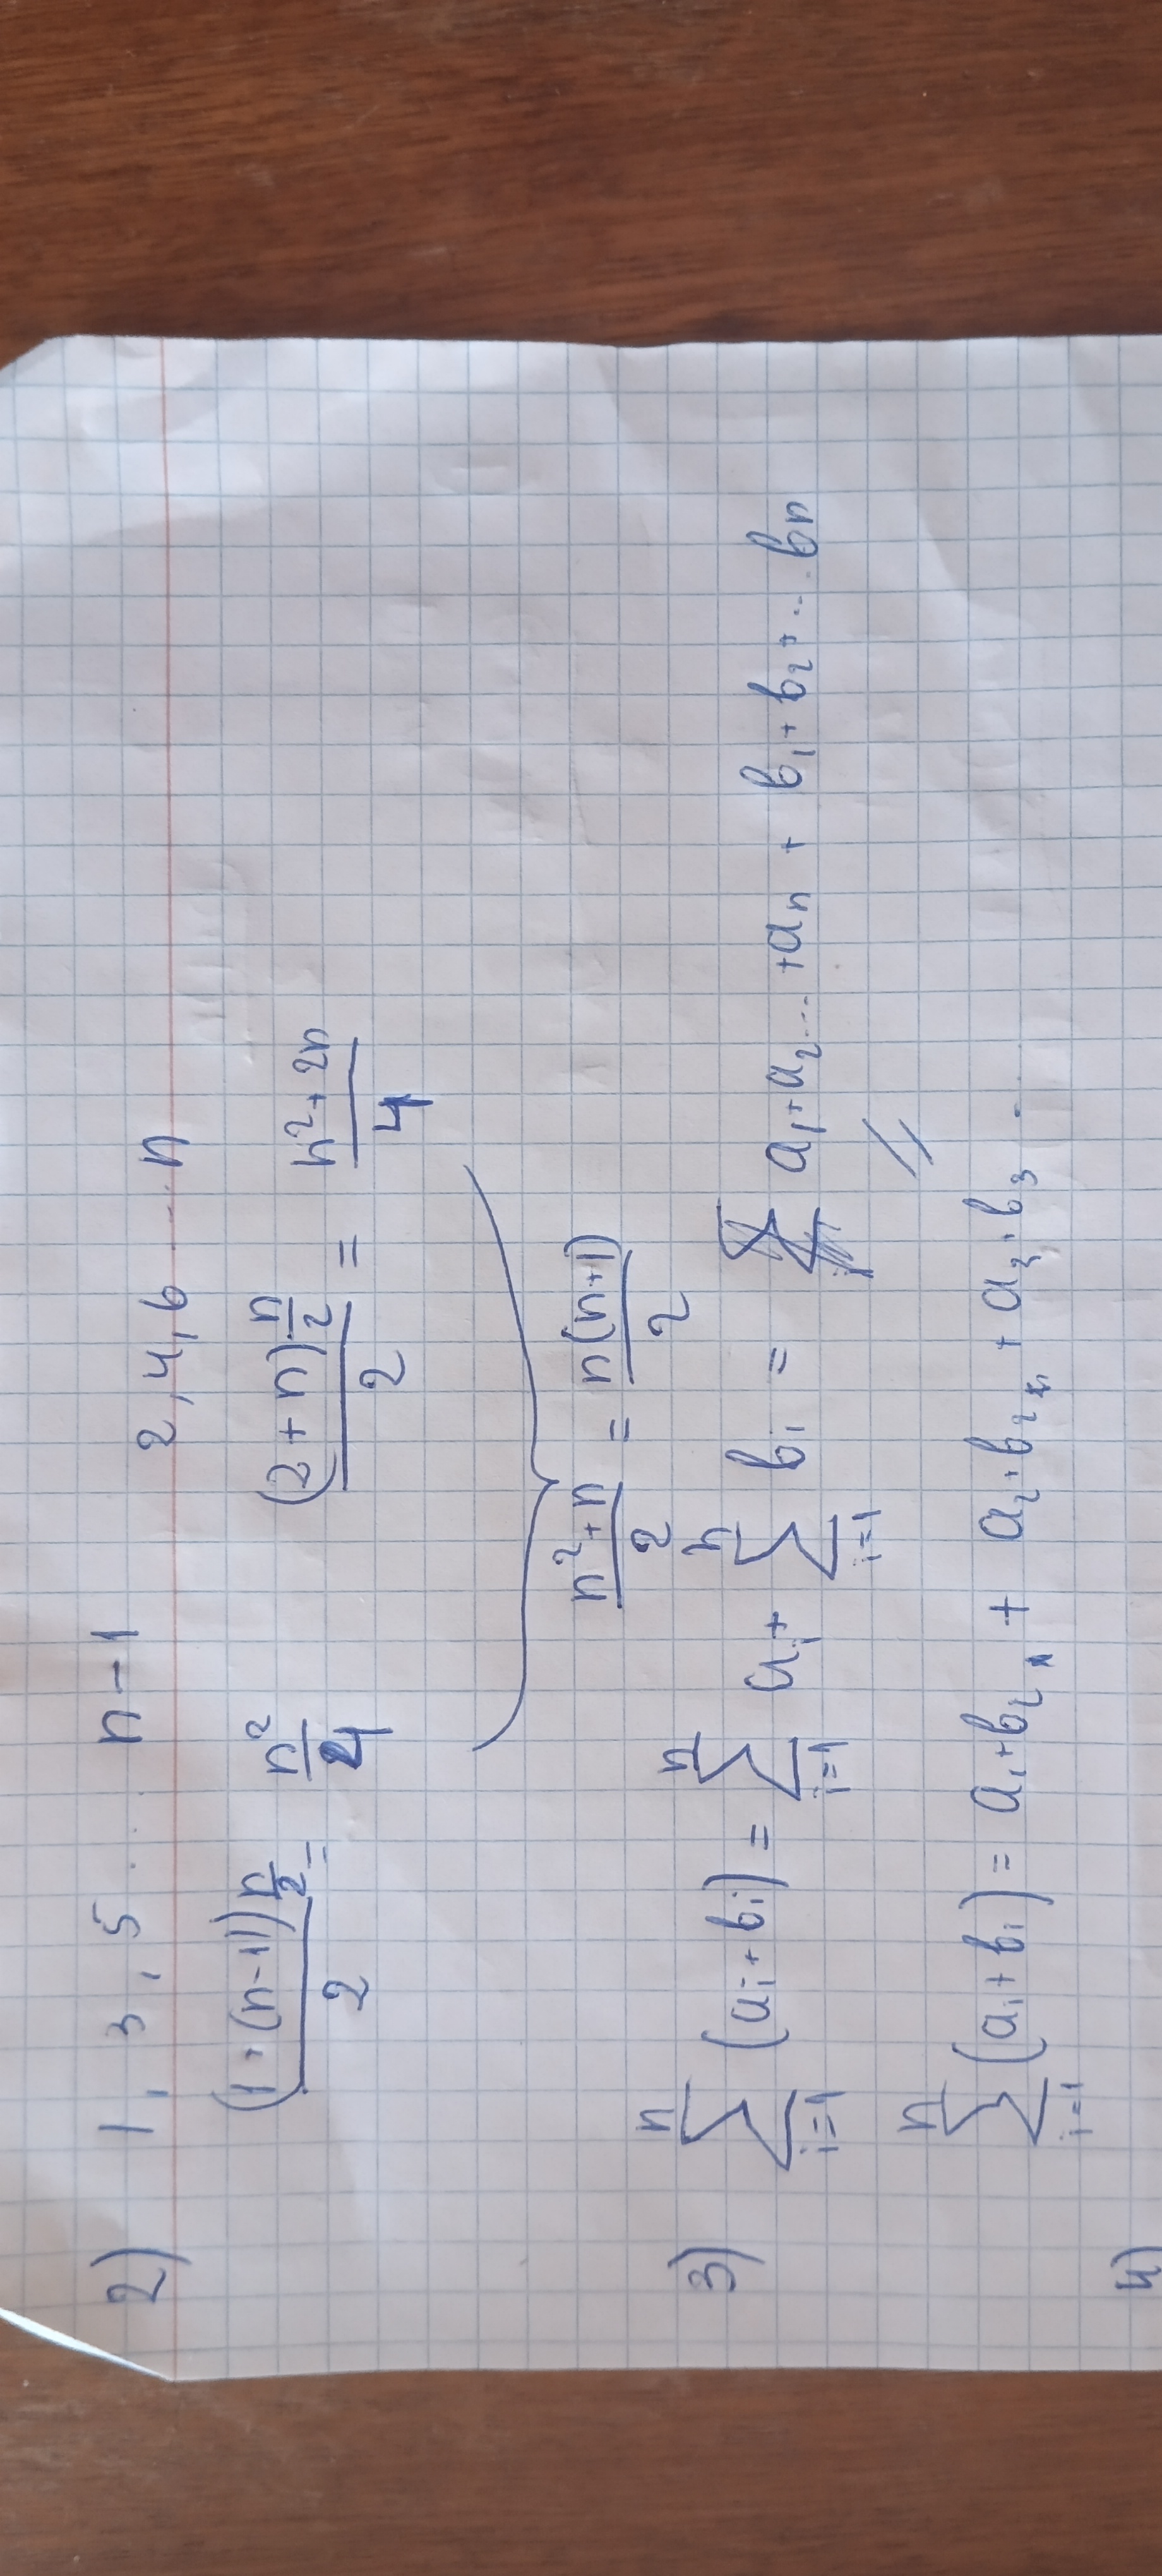 2) 1, 3, 5 ... n-1 2, 4, 6 ... n
((1+(n-1)) n/2)/2 = n²/4 ((2+n) n/2)/2 = (n²+2n)/4
(n²+n)/2 = n(n+1)/2
3) ∑ⁿᵢ₌₁ (aᵢ+bᵢ) = ∑ⁿᵢ₌₁ aᵢ + ∑ⁿᵢ₌₁ bᵢ = a₁+a₂...+aₙ + b₁+b₂+...bₙ
∑ⁿᵢ₌₁ (aᵢ+bᵢ) = a₁+b₂ + a₂+b₂ + a₃+b₃ ...
4)